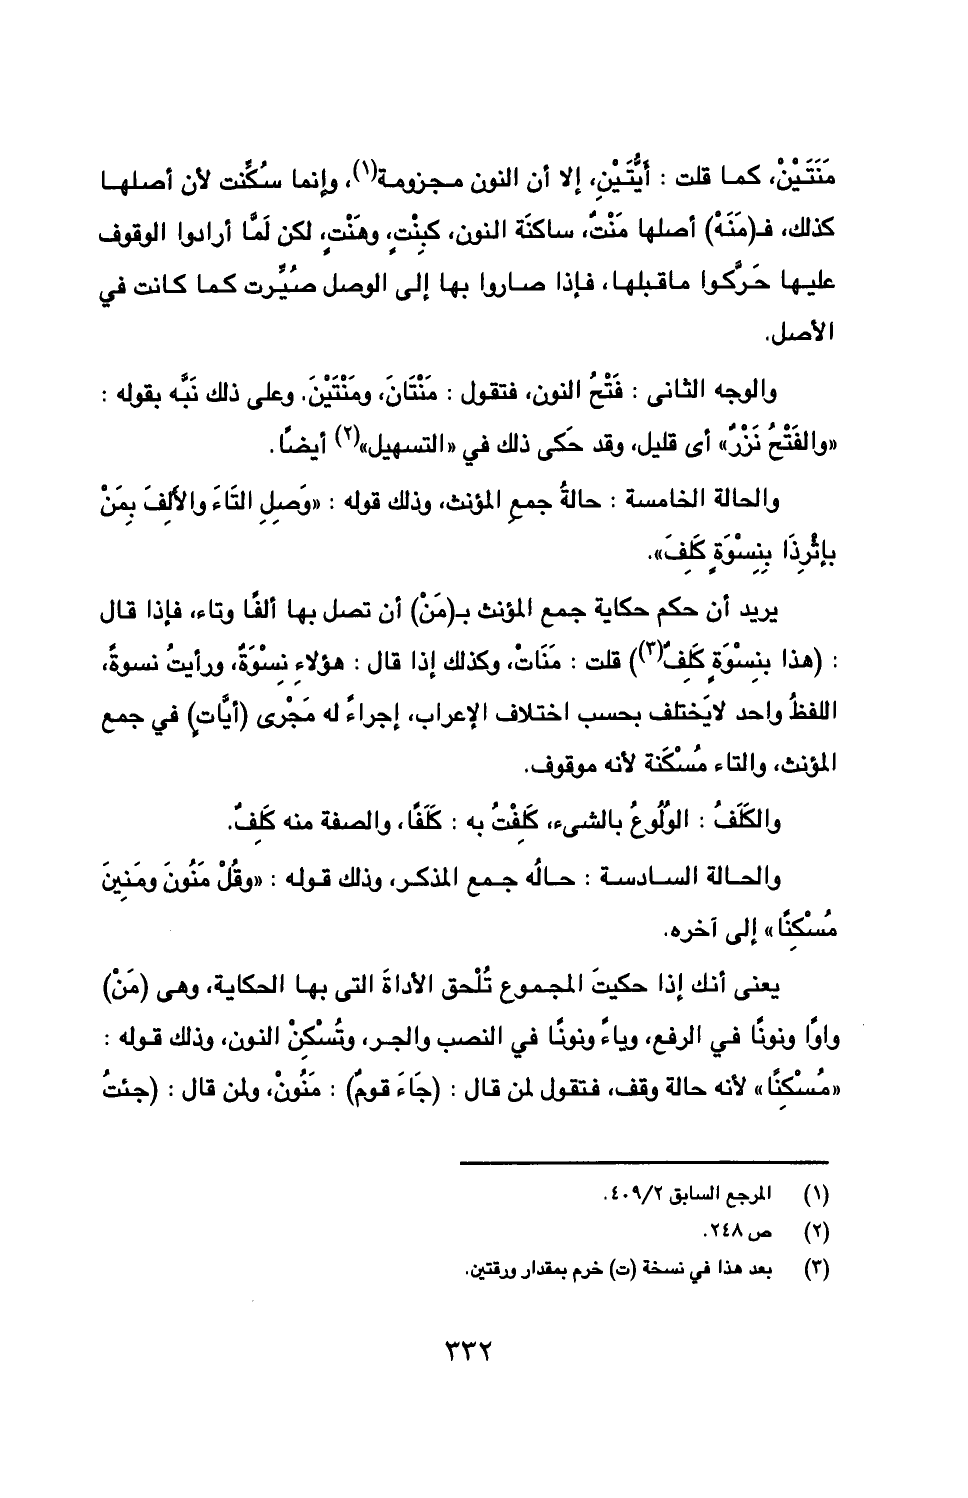 مَنَتَيْنْ، كما قلت : أَيَّتَيْنِ، إلا أن النون مجزومة(١)، وإنما سُكِّنت لأن أصلها
كذلك، فـ(مَنَهْ) أصلها مَنْتٌ، ساكنَة النون، كبِنْتٍ، وهَنْتٍ، لكن لَمَّا أرادوا الوقوف
عليها حَرَّكوا ماقبلها، فإذا صاروا بها إلى الوصل صُيِّرت كما كانت في
الأصل.
والوجه الثانى : فَتْحُ النون، فتقول : مَنْتَانَ، ومَنْتَيْنَ. وعلى ذلك نَبَّه بقوله :
«والفَتْحُ نَزْرٌ» أى قليل، وقد حَكى ذلك في «التسهيل»(٢) أيضًا.
والحالة الخامسة : حالةُ جمعِ المؤنث، وذلك قوله : «وَصِلِ التَاءَ والأَلِفَ بِمَنْ
بإِثْرِذَا بِنِسْوَةٍ كَلِفَ».
يريد أن حكم حكاية جمع المؤنث بـ(مَنْ) أن تصل بها ألفًا وتاء، فإذا قال
: (هذا بنِسْوَةٍ كَلِفٌ(٣)) قلت : مَنَاتْ، وكذلك إذا قال : هؤلاءِ نِسْوَةٌ، ورأيتُ نسوةً،
اللفظُ واحد لايَختلف بحسب اختلاف الإعراب، إجراءً له مَجْرى (أيَّاتٍ) في جمع
المؤنث، والتاء مُسْكَنة لأنه موقوف.
والكَلَفُ : الوُلُوعُ بالشىء، كَلِفْتُ به : كَلَفًا، والصفة منه كَلِفٌ.
والحالة السادسة : حالُه جمع المذكر، وذلك قوله : «وقُلْ مَنُونَ ومَنِينَ
مُسْكِنًا» إلى آخره.
يعنى أنك إذا حكيتَ المجموع تُلْحق الأداةَ التى بها الحكاية، وهى (مَنْ)
واوًا ونونًا في الرفع، وياءً ونونًا في النصب والجر، وتُسْكِنْ النون، وذلك قوله :
«مُسْكِنًا» لأنه حالة وقف، فتقول لمن قال : (جَاءَ قومٌ) : مَنُونْ، ولمن قال : (جئتُ
(١) المرجع السابق ٤٠٩/٢.
(٢) ص ٢٤٨.
(٣) بعد هذا في نسخة (ت) خرم بمقدار ورقتين.
٣٣٢